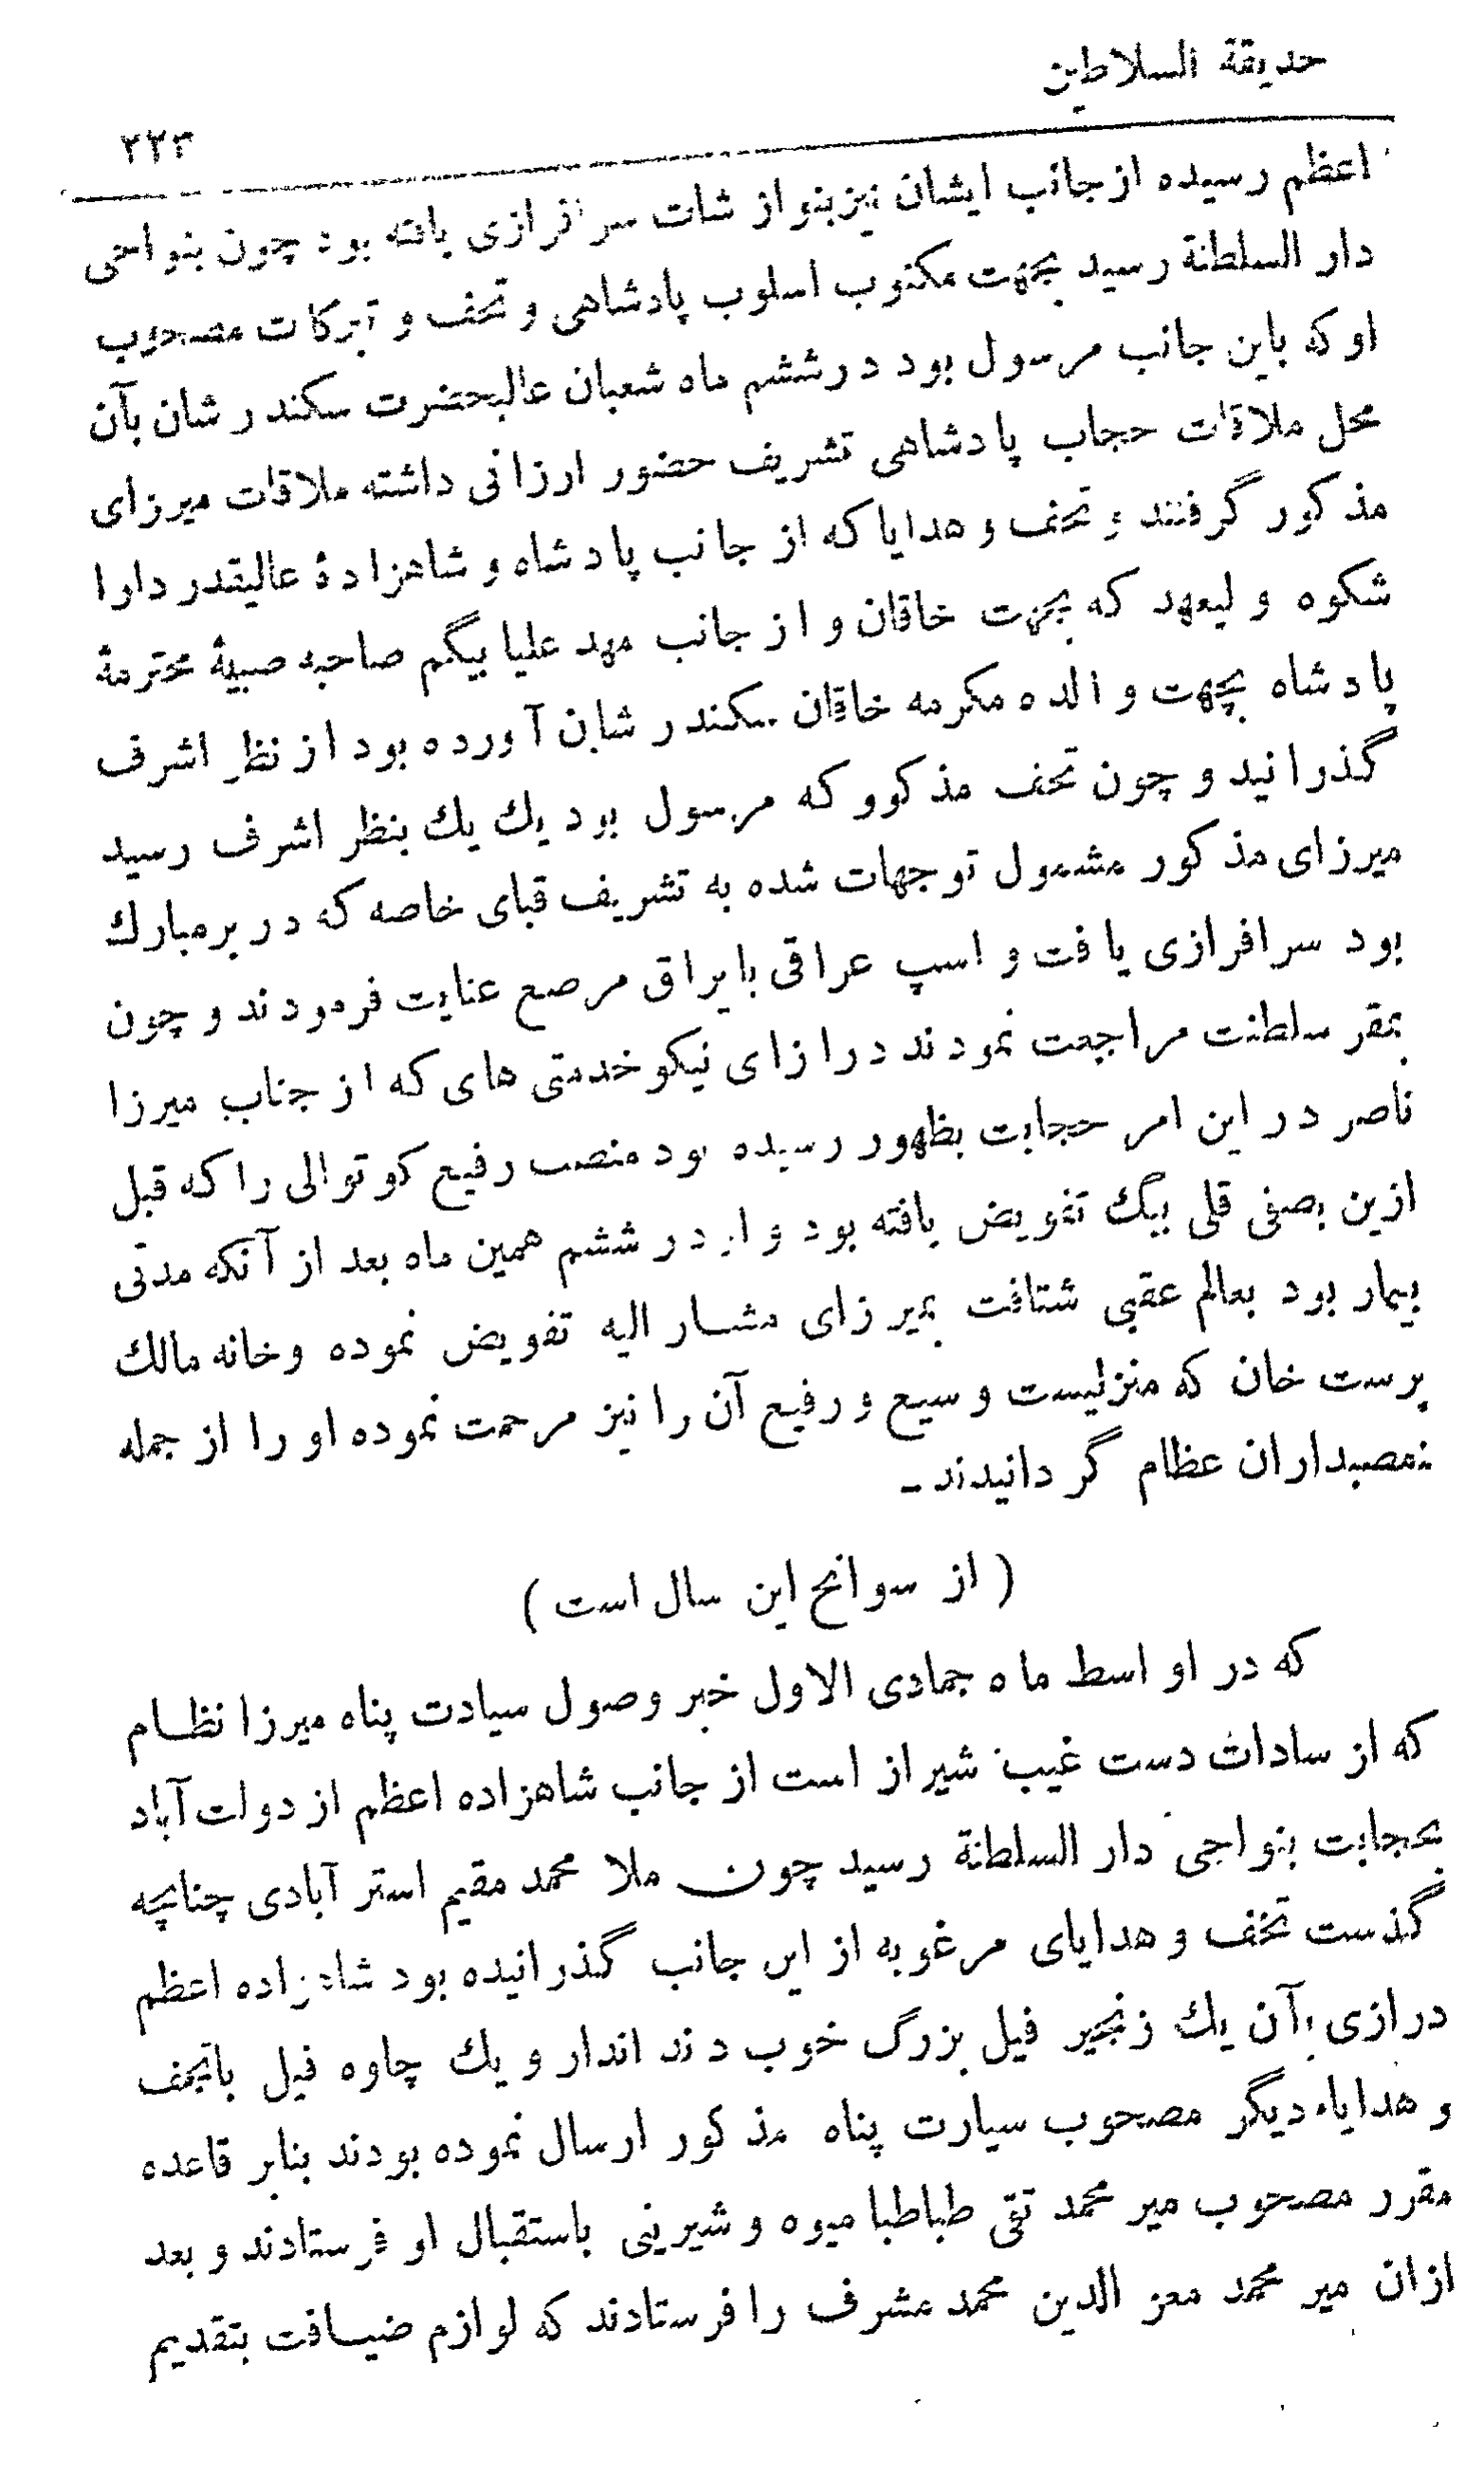 حديقة السلاطين
۲۲۳
اعظم رسيده از جانب ايشان نيز بنواز شات سر افرازى يافته بود چون بنواحى
دار السلطنة رسيد بجهت مكتوب اسلوب پادشاهى و تحف و تبركات مصحوب
او كه باين جانب مرسول بود در ششم ماه شعبان عاليحضرت سكندر شان بآن
محل ملاقات حجاب پادشاهى تشريف حضور ارزانى داشته ملاقات ميرزاى
مذكور گرفتند و تحف و هدايا كه از جانب پادشاه و شاهزادۀ عاليقدر دارا
شكوه وليعهد كه بجهت خاقان و از جانب مهد عليا بيگم صاحبه صبيۀ محترمۀ
پادشاه بجهت والده مكرمه خاقان سكندر شان آورده بود از نظر اشرف
گذرانيد و چون تحف مذكوو كه مرسول بود يك يك بنظر اشرف رسيد
ميرزاى مذكور مشمول توجهات شده به تشريف قباى خاصه كه در بر مبارك
بود سرافرازى يافت و اسپ عراقى با يراق مرصع عنايت فرمودند و چون
بمقر سلطنت مراجعت نمودند در ازاى نيكو خدمتى هاى كه از جناب ميرزا
ناصر در اين امر حجابت بظهور رسيده بود منصب رفيع كوتوالى را كه قبل
ازين بصفى قلى بيگ تفويض يافته بود و او در ششم همين ماه بعد از آنكه مدتى
بيمار بود بعالم عقبى شتافت بميرزاى مشار اليه تفويض نموده وخانه مالك
پرست خان كه منزليست وسيع و رفيع آن را نيز مرحمت نموده او را از جمله
منصبداران عظام گردانيدند ـ
( از سوانح اين سال است )
كه در اواسط ماه جمادى الاول خبر وصول سيادت پناه ميرزا نظام
كه از سادات دست غيب شيراز است از جانب شاهزاده اعظم از دولت آباد
بحجابت بنواجى دار السلطنة رسيد چون ملا محمد مقيم استر آبادى چنانچه
گذست تخف و هداياى مرغوبه از اين جانب گذرانيده بود شاهزاده اعظم
در ازى بآن يك زنجير فيل بزرگ خوب دند اندار و يك چاوه فيل باتحف
و هداياء ديگر مصحوب سيارت پناه مذكور ارسال نموده بودند بنابر قاعده
مقرر مصحوب مير محمد تقى طباطبا ميوه و شيرينى باستقبال او فرستادند و بعد
ازان مير محمد معز الدين محمد مشرف را فرستادند كه لوازم ضيافت بتقديم